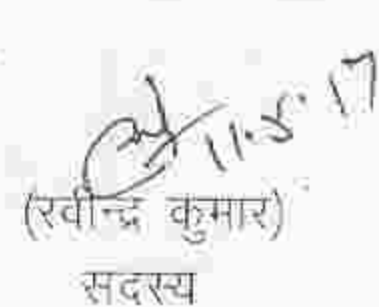 11.5.17
(रवीन्द्र कुमार)
सदस्य